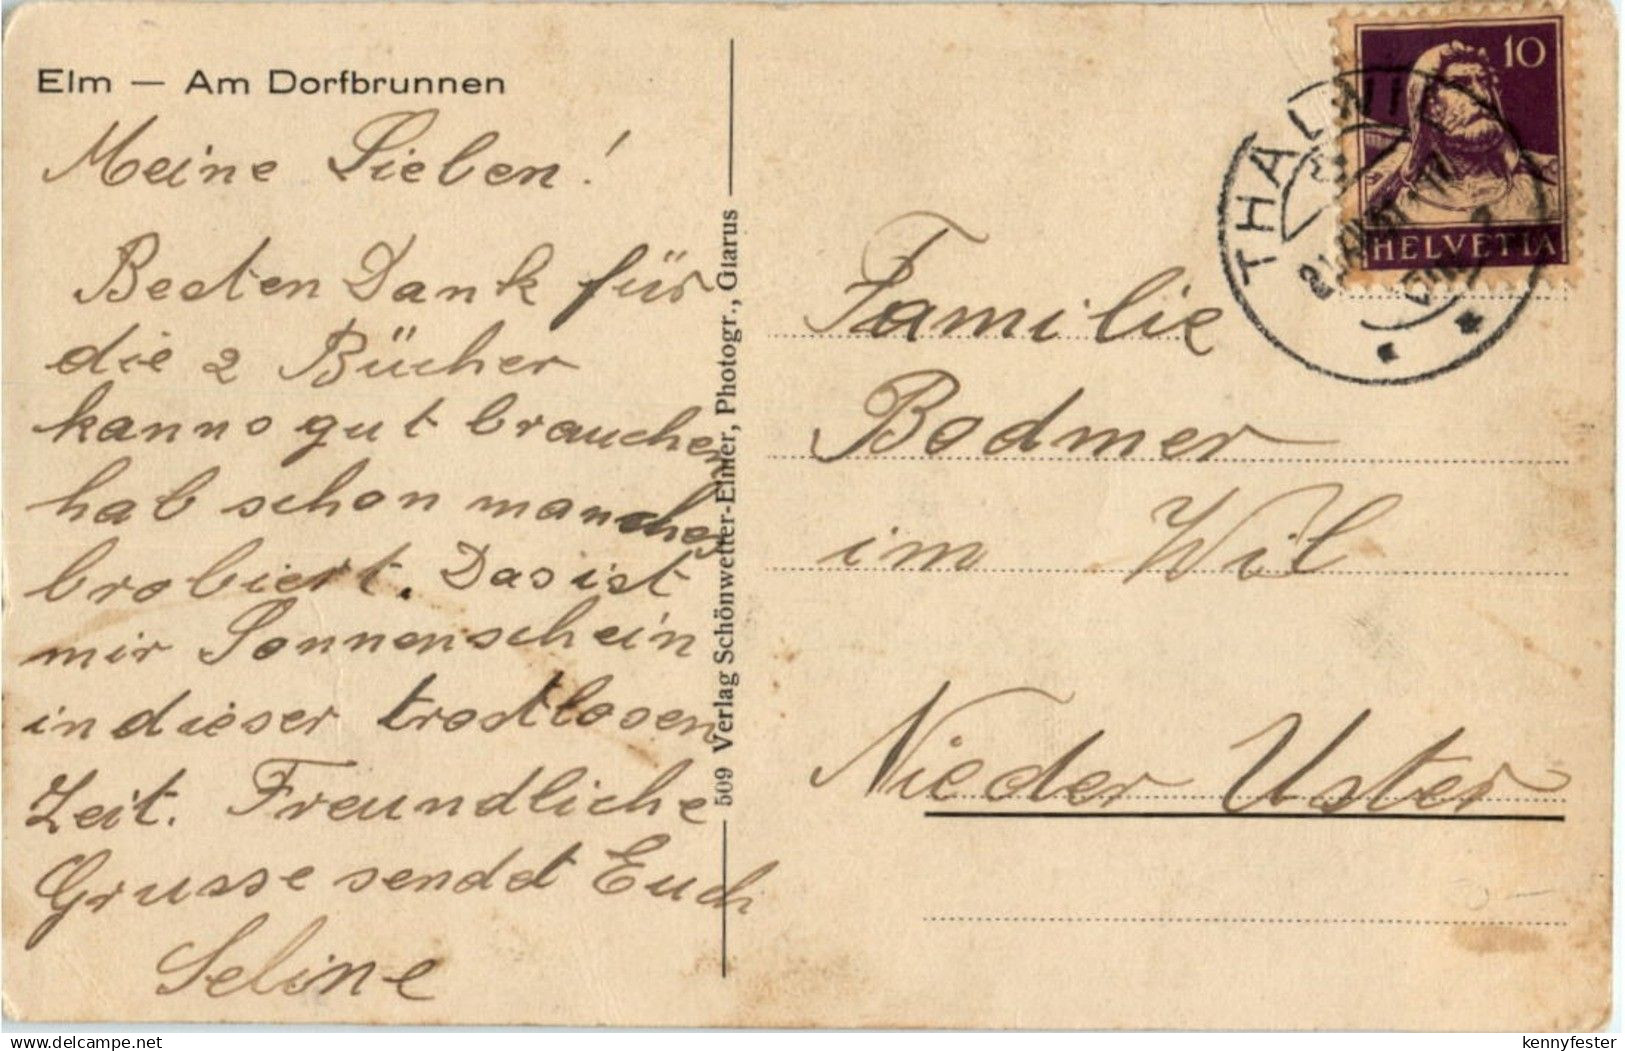 Elm — Am Dorfbrunnen
Meine Lieben!
Besten Dank für
die 2 Bücher
kann so gut brauchen
hab schon manches
brobiert. Das ist
mir Sonnenschein
in dieser trostlosen
Zeit. Freundliche
Grusse sendet Euch
Seline
509 Verlag Schönwetter-Elmer, Photogr., Glarus
10
HELVETIA
THALWIL
Familie
Bodmer
im Wil
Nieder Uster
kennyfester